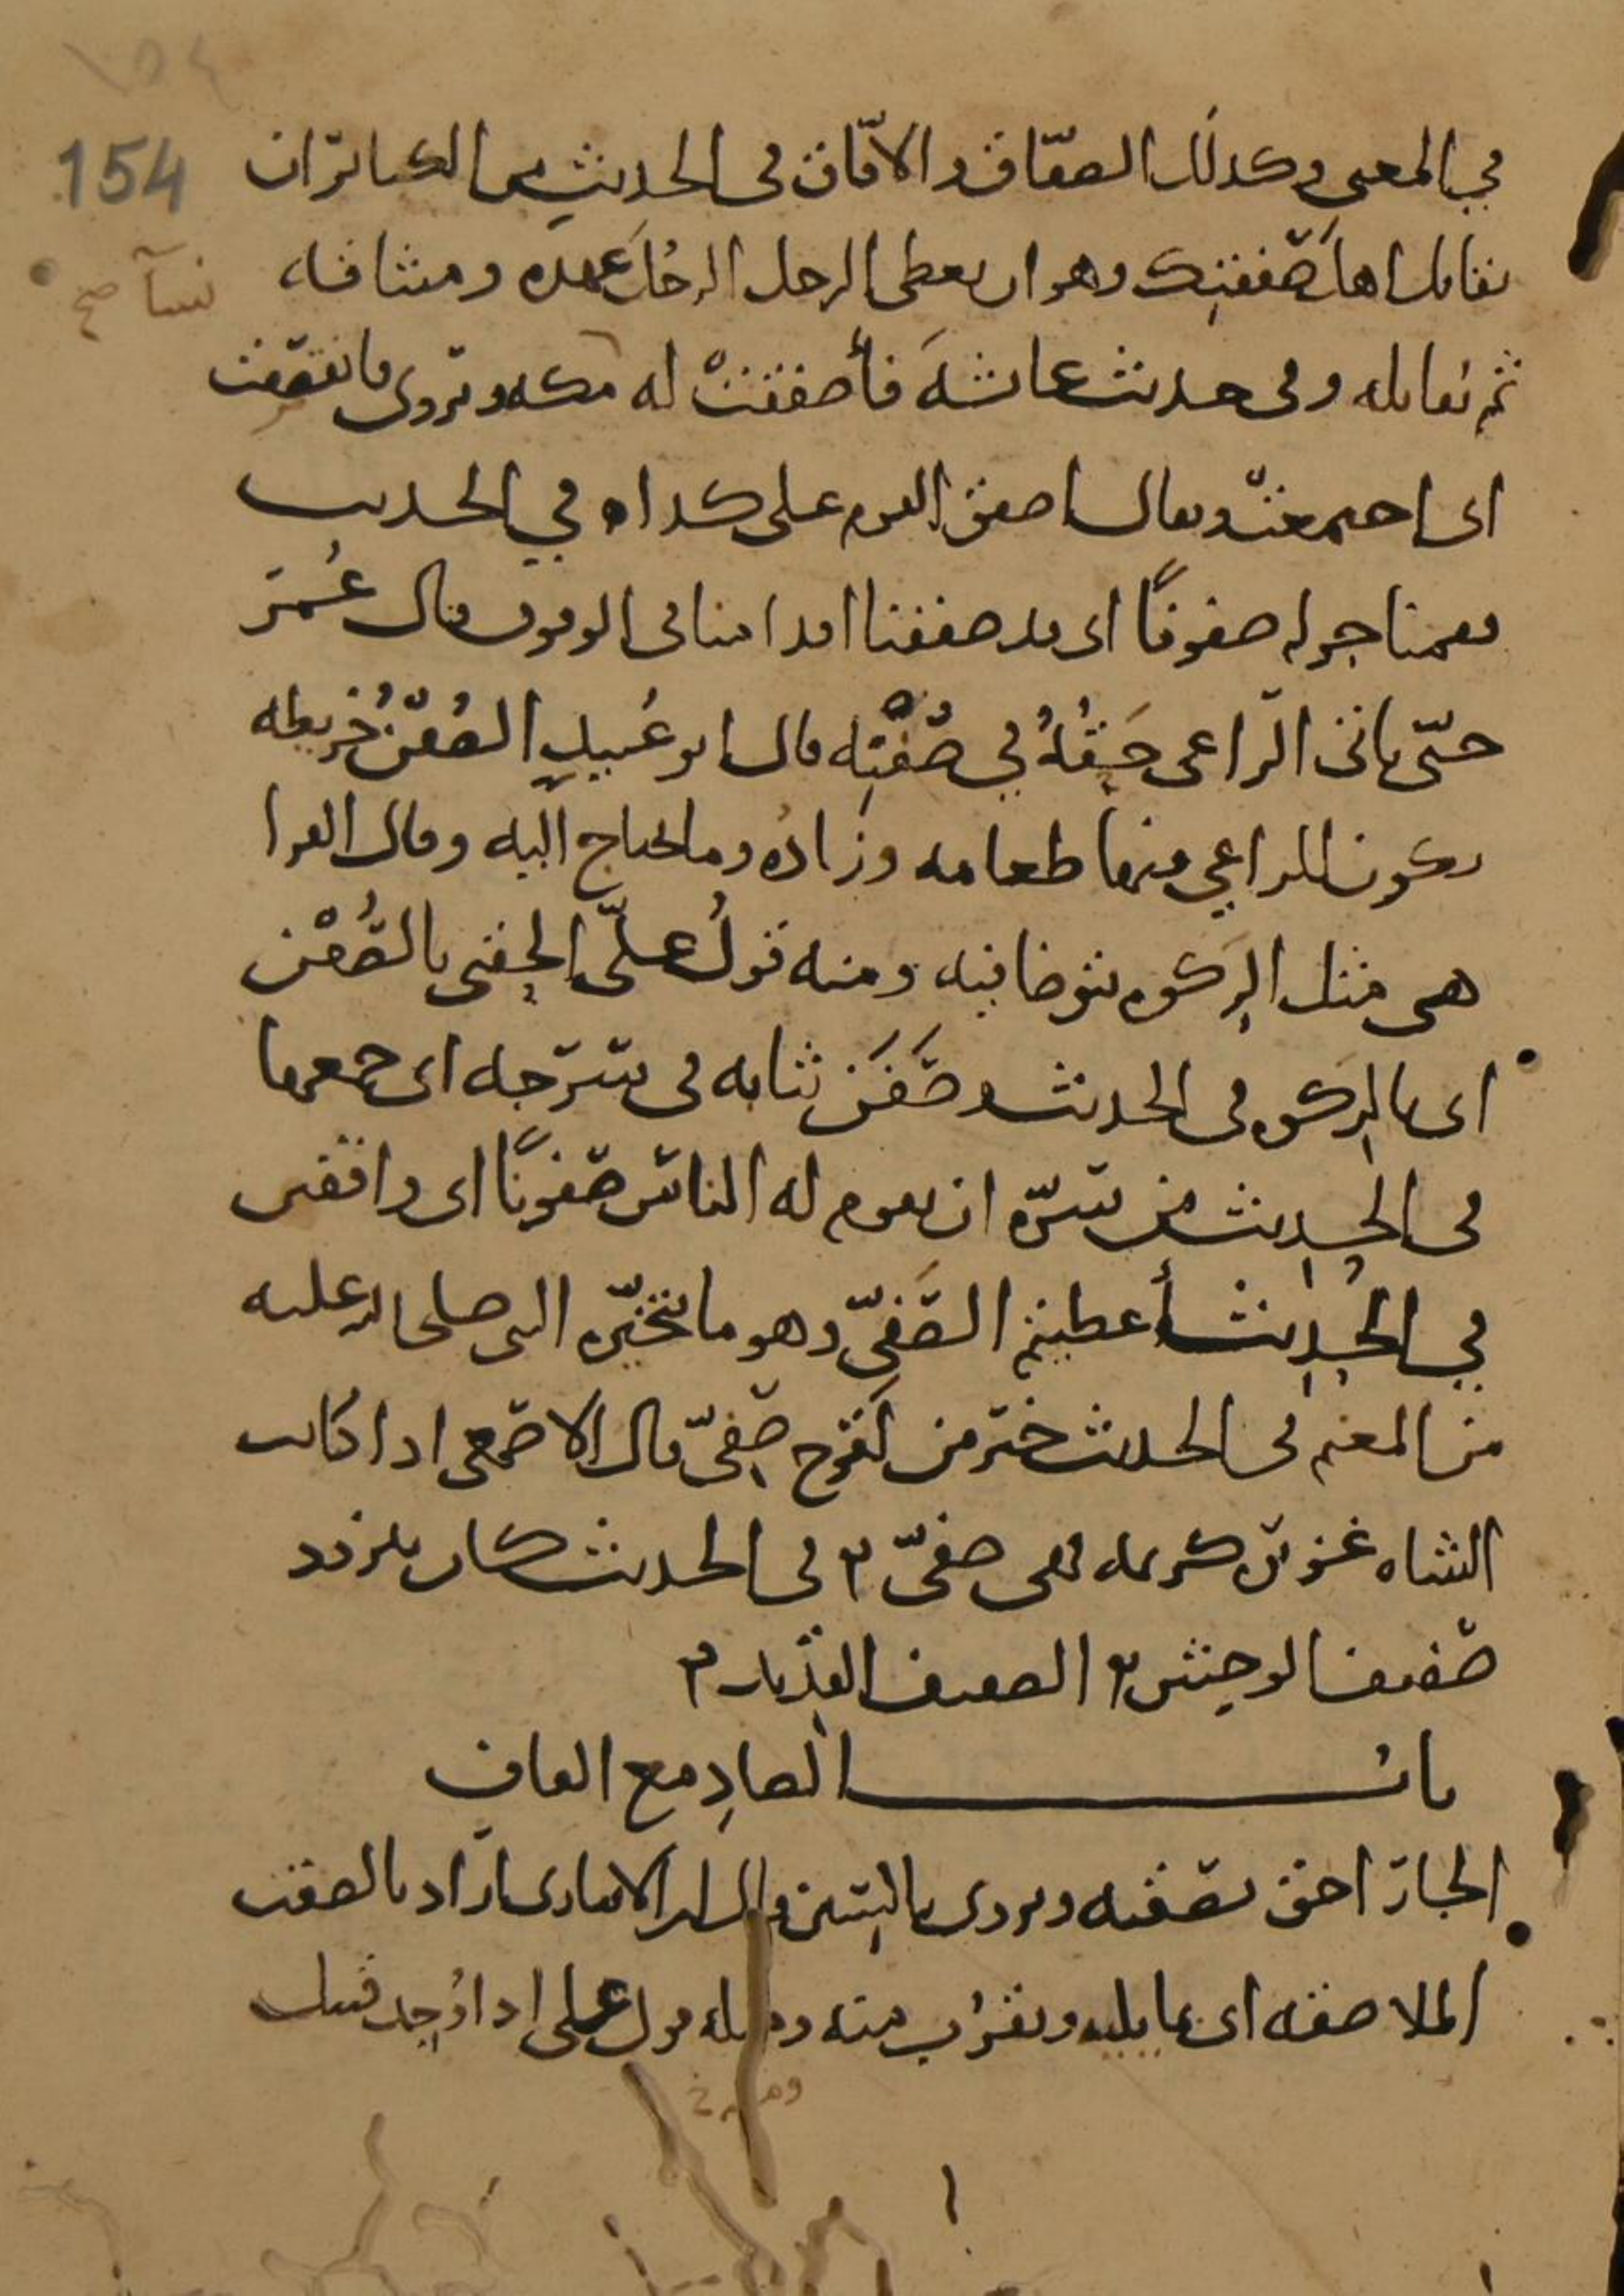 154
في المعنى وكذلك الصفّاق والافّاق في الحديث من الكبائر ان
تقاتل اهل صَفْقتِك وهو ان يعطى الرجل الرجُل عهده وميثاقه
نسآ صح
ثم يقاتله وفي حديث عائشهَ فأصفقتْ له مكه ويروى فانصفقت
اى اجتمعتْ ويقال اصفق القوم على كذا ه في الحديث
فقمنا حوله صفوفًا اى قد صففنا اقدامنا في الوقوف قال عُمَر
حتّى ياتى الرّاعى حَقُّهُ في صُفْنِه قال ابو عُبيدٍ الصُفْنُ خريطه
يكون للراعي فيها طعامه وزاده وما يحتاج اليه وقال الفرا
هى مثل الرَكوه يتوضا فيه ومنه قولُ علىّ الحِقنى بالصُفْن
اى بالرَكوه في الحديث وصَفَنَ ثيابه في سرجه اى جمعها
في الحديث من سرّه ان يقوم له الناس صفونًا اى واقفين
في الحديث أعطيتم الصَّفِيّ وهو ما يتخيّره النبى صلى الله عليه
من المغنم في الحديث خير من لَقُوح صفىّ قال الاصمعى اذا كانت
الشاه غزيرة كريمه فهى صفىّ ٣ في الحديث كان يتزود
صفيف الوحش ٣ الصفيف القديد ٣
بابُ الصادِ مع القاف
الجارُ احق بصقبه ويروى بالسين قال ابن الانبارى اراد بالصقب
الملاصقه اى بما يليه ويقرُب منه ومثله قول على اذا وُجد قتيل